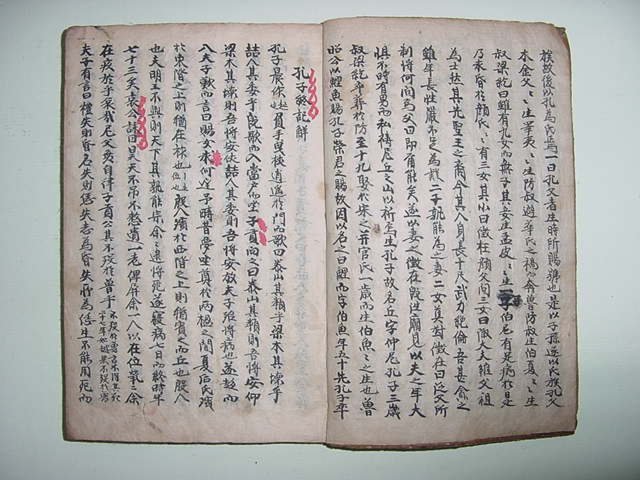 族故後以孔為氏焉一曰孔父者生時所賜號也是以子孫遂以氏族孔父
木金父々々生睪夷々々生防叔避華氏之禍而奔魯防叔生伯夏々々生
叔梁紇曰雖有九女而無子其妾生孟皮々々字伯尼有足病於是
乃求昏於顏氏々有三女其小曰徵在顏父問三女曰陬大夫雖父祖
為士然其先聖王之裔今其人身長十尺武力絕倫吾甚貪之
雖年長性嚴不足為疑二子孰能為之妻二女莫對徵在曰從父所
制將何問焉父曰即爾能矣遂以妻之徵在既往廟見以夫之年大
懼不時有男而私禱尼丘之山以祈焉生孔子故名丘字仲尼孔子三歲
叔梁紇卒葬於防至十九娶於宋之幵官氏一歲而生伯魚々之生也魯
昭公以鯉魚賜孔子榮君之賜故因以名之曰鯉而字伯魚年五十先孔子卒
孔子終記解
孔子晨作負手曳杖逍遙於門而歌曰泰山其頹乎梁木其壞乎
喆人其委乎既歌而入當戶而坐子貢聞之曰泰山其頹則吾將安仰
梁木其壞則吾將安仗喆人其委則吾將安放夫子殆將病也遂趨而
入夫子歎而言曰賜女來何遲予疇昔夢坐奠於兩楹之間夏后氏殯
於東階之上則猶在阼也殷人殯於西階之上則猶賓之而丘也殷人
也夫明王不興則天下其孰能宗余々逮將死遂寢病七日而終時年
七十三矣哀公誄曰昊天不吊不憖遺一老俾屏余一人以在位煢々余
在疚於乎哀哉尼父無自律子貢曰公其不沒於魯乎
夫子有言曰禮失則昏名失則愆失志為昏失所為愆生不能用死而